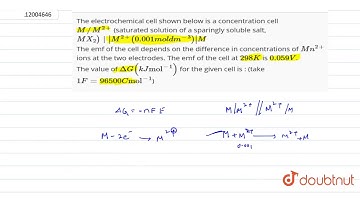 12004646
The electrochemical cell shown below is a concentration cell
M/M²⁺ (saturated solution of a sparingly soluble salt,
MX₂) | |M²⁺(0.001moldm⁻³)|M
The emf of the cell depends on the difference in concentrations of Mn²⁺
ions at the two electrodes. The emf of the cell at 298K is 0.059V.
The value of ΔG(kJmol⁻¹) for the given cell is : (take
1F = 96500Cmol⁻¹)
ΔG = -nFE M|M²⁺//M²⁺/M
M - 2e⁻ → M²⁺ M + M²⁺ → M²⁺ + M
0.001
doubtnut